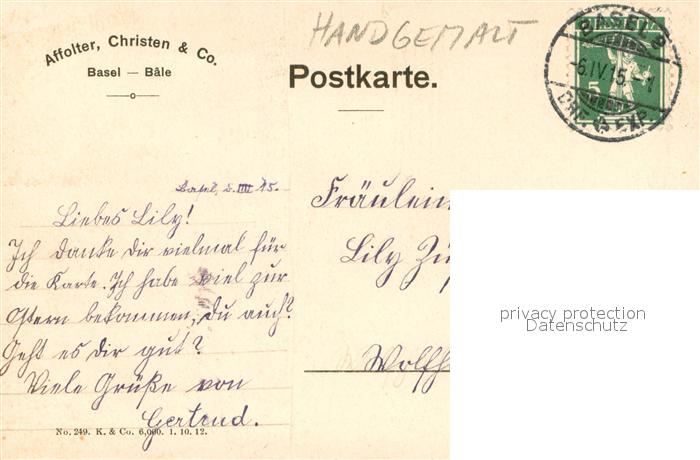 HANDGEMALT
Affolter, Christen & Co.
Basel — Bâle
Postkarte.
BASEL
-6.IV.15.-1
BRF. EXP.
5
Basel, 5. IIII 15.
Liebes Lily!
Ich danke dir vielmal für
die Karte. Ich habe viel zur
Ostern bekommen, du auch?
Geht es dir gut?
Viele Grüße von
Gertrud.
No. 249. K. & Co. 6,000. 1. 10. 12.
Fräulein
Lily
Wolfh
privacy protection
Datenschutz